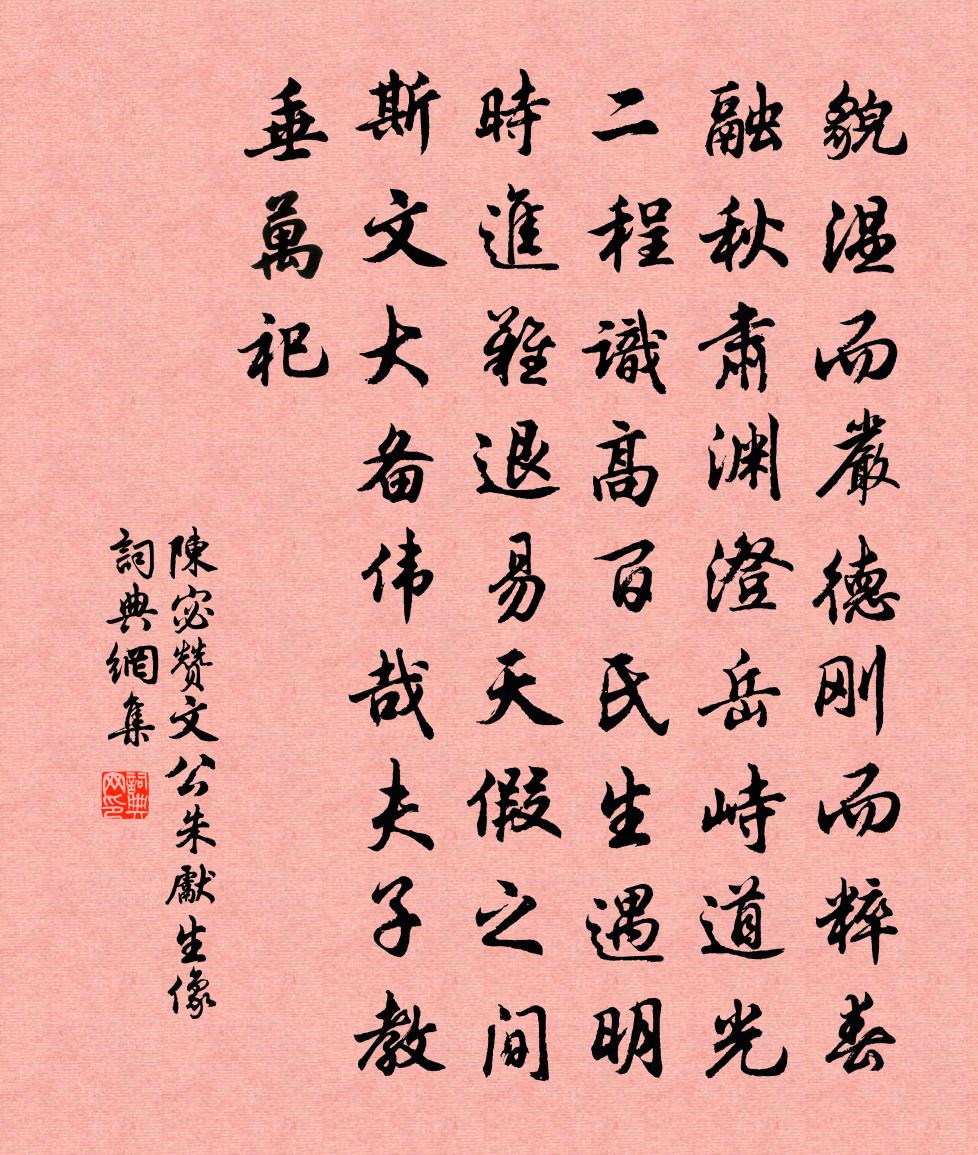 貌温而嚴德刚而粹春
融秋肅渊澄岳峙道光
二程識高百氏生遇明
時進難退易天假之间
斯文大备伟哉夫子教
垂萬祀
陳宓赞文公朱獻生像
詞典網集
詞典网印